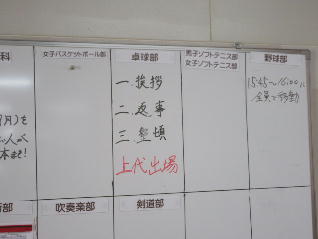 科
女子バスケットボール部
卓球部
男子ソフトテニス部
女子ソフトテニス部
野球部
一 挨拶
二 返事
三 整頓
上代出場
15:45〜16:00に
全員で移動
月)を
人が
本まで!
術部
吹奏楽部
剣道部